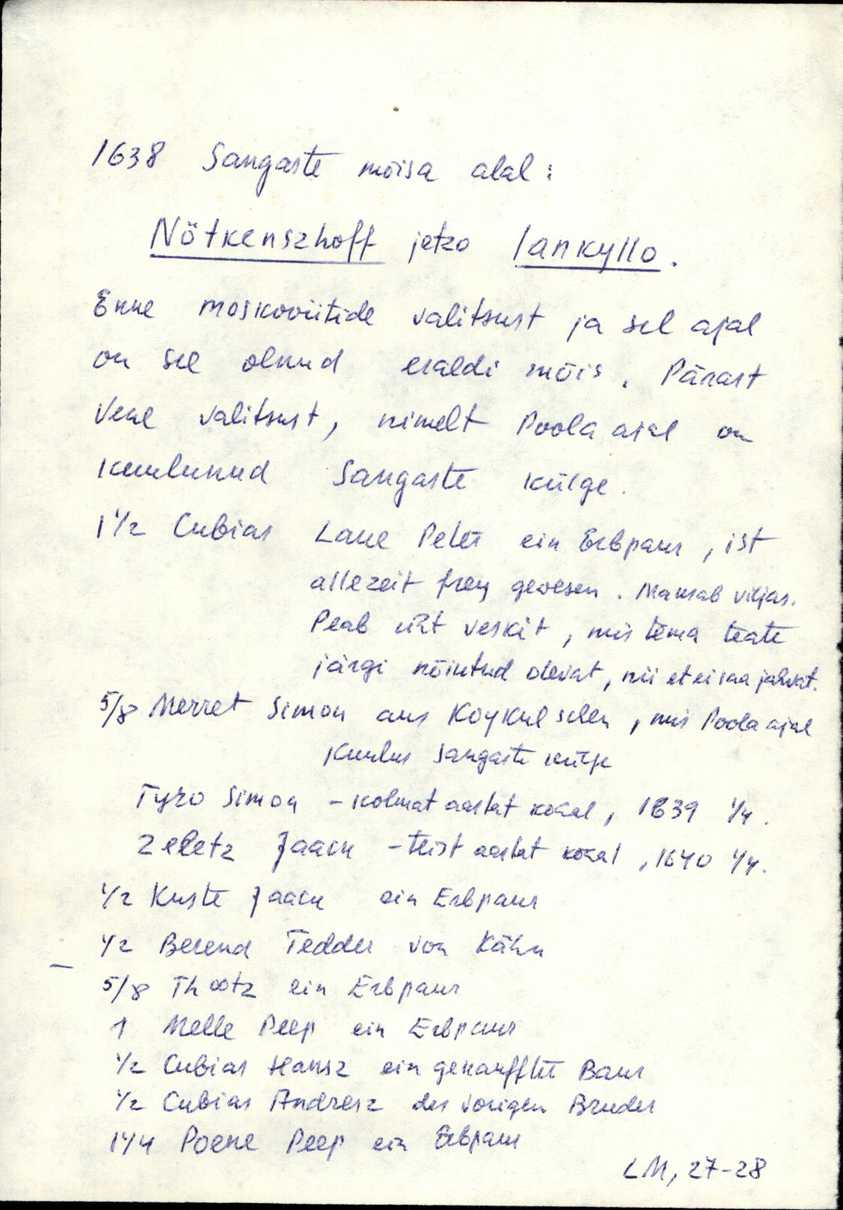 1638 Sangaste mõisa alal:
Nötkenszhoff jetzo Iankyllo.
Enne moskoviitide valitsust ja sel ajal
on see olnud eraldi mõis. Pärast
Vene valitsust, nimelt Poola ajal on
kuulunud Sangaste külge.
1 1/2 Cubias Laue Peter ein Erbpaur, ist
allezeit frey gewesen. Maksab viljas.
Peab üht veskit, mis tema teate
järgi nõiutud olevat, nii et ei saa jahvat.
5/8 Merret Simon aus Koykulschen, mis Poola ajal
kuulus Sangaste külje
Tyro Simon - kolmat aastat kohal, 1639 1/4.
Zeletz Jaack - teist aastat kohal, 1640 1/4.
1/2 Kuste Jaack ein Erbpaur
1/2 Berend Tedder von Kähn
5/8 Thootz ein Erbpaur
1 Melle Peep ein Erbpaur
1/2 Cubias Hansz ein gekauffter Baur
1/2 Cubias Andresz des vorigen Bruder
1 1/4 Poene Peep ein Erbpaur
LM, 27-28